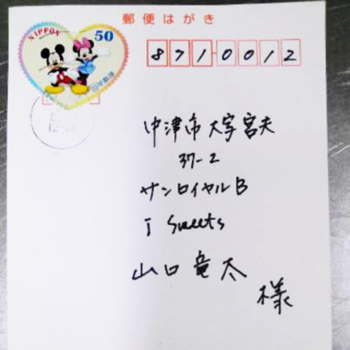 郵便はがき
NIPPON 50
日本郵便
8710012
中津市大字宮夫
37-2
サンロイヤルB
i Sweets
山口竜太
様